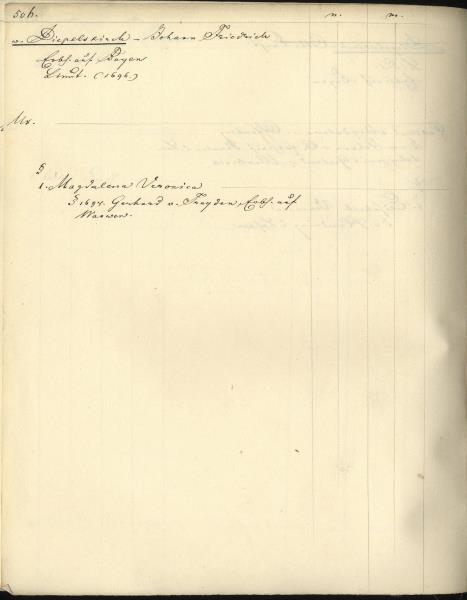 506. n. m.
v. Diepelskirch - Johann Friedrich
Erbh. auf Bayen
Lieut. (1696)
Ux.
§
1. Magdalena Veronica
§ 1694. Gerhard v. Treyden, Erbh. auf
Warwen.